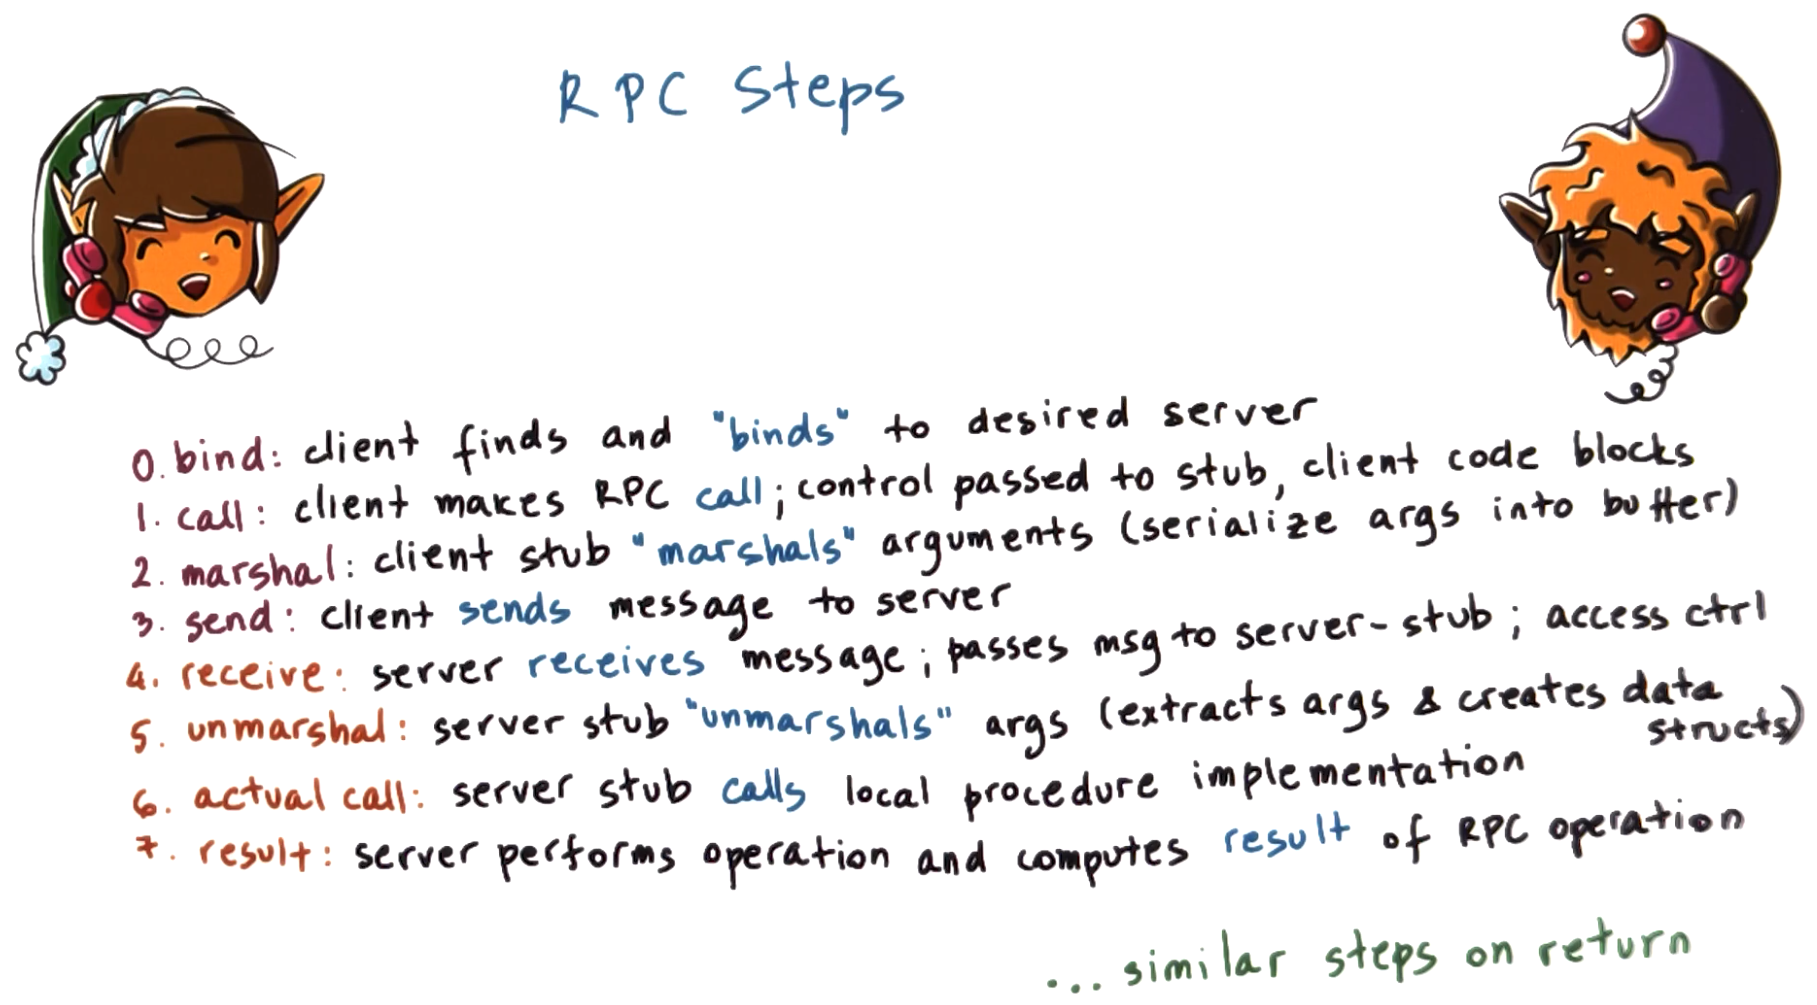 RPC Steps
0. bind: client finds and "binds" to desired server
1. call: client makes RPC call; control passed to stub, client code blocks
2. marshal: client stub "marshals" arguments (serialize args into buffer)
3. send: client sends message to server
4. receive: server receives message; passes msg to server-stub; access ctrl
5. unmarshal: server stub "unmarshals" args (extracts args & creates data
structs)
6. actual call: server stub calls local procedure implementation
7. result: server performs operation and computes result of RPC operation
... similar steps on return